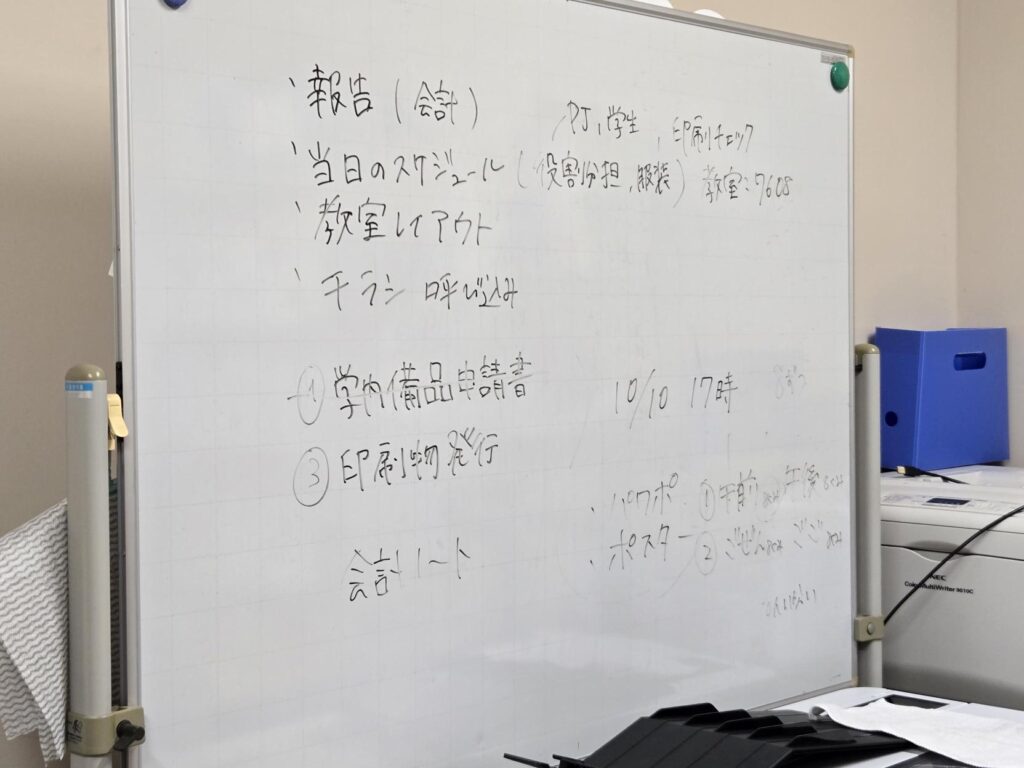 、報告（会計）
PJ，学生，印刷チェック
、当日のスケジュール（役割分担，服装）教室：7608
、教室レイアウト
、チラシ 呼び込み
① 学内備品申請書
10/10 17時
③ 印刷物発行
・パワポ ① 午前 午後
・ポスター ② ごぜん ごご
会計ノート
NEC
Color MultiWriter 9010C